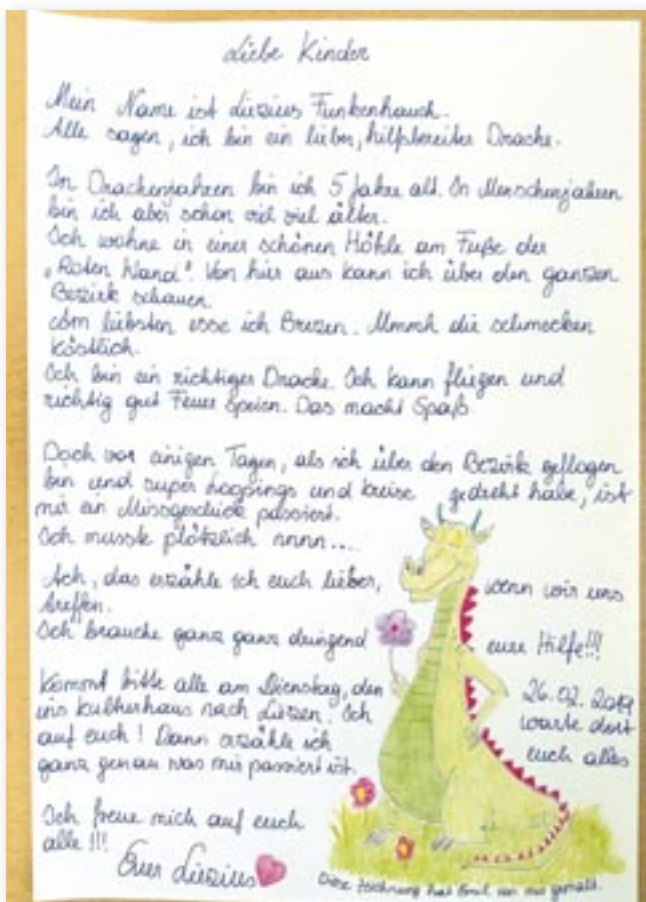 Liebe Kinder
Mein Name ist Liezius Funkenhauch.
Alle sagen, ich bin ein lieber, hilfsbereiter Drache.
In Drachenjahren bin ich 5 Jahre alt. In Menschenjahren
bin ich aber schon viel viel älter.
Ich wohne in einer schönen Höhle am Fuße der
„Roten Wand“. Von hier aus kann ich über den ganzen
Bezirk schauen.
Am liebsten esse ich Brezen. Mmmh die schmecken
köstlich.
Ich bin ein richtiger Drache. Ich kann fliegen und
richtig gut Feuer speien. Das macht Spaß
Doch vor einigen Tagen, als ich über den Bezirk geflogen
bin und super Loopings und Kreise gedreht habe, ist
mir ein Missgeschick passiert.
Ich musste plötzlich nnnn...
Ach, das erzähle ich euch lieber, wenn wir uns
treffen.
Ich brauche ganz ganz dringend eure Hilfe!!!
Kommt bitte alle am Dienstag, den 26.02.2019
ins Kulturhaus nach Liezen. Ich warte dort
auf euch! Dann erzähle ich euch alles
ganz genau was mir passiert ist.
Ich freue mich auf euch
alle !!!
Euer Liezius
Diese Zeichnung hat Emil von mir gemalt.